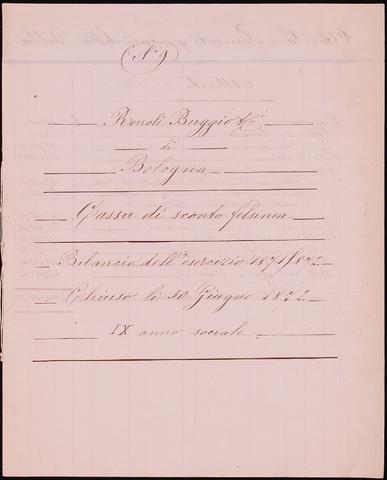 N° 9
Renoli Buggio & C.i
di
Bologna
Cassa di sconto felsinea
Bilancio dell'esercizio 1871/872
Chiuso li 30 Giugno 1872
IX anno sociale